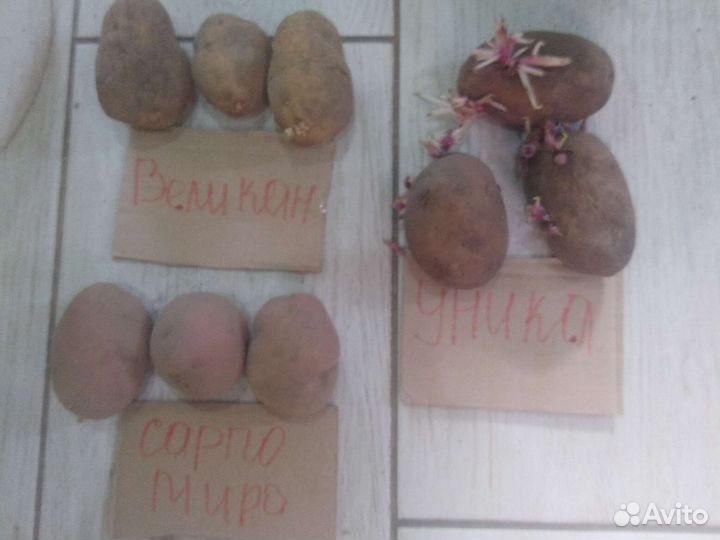 Великан
Уника
Сарпо
Мира
Avito